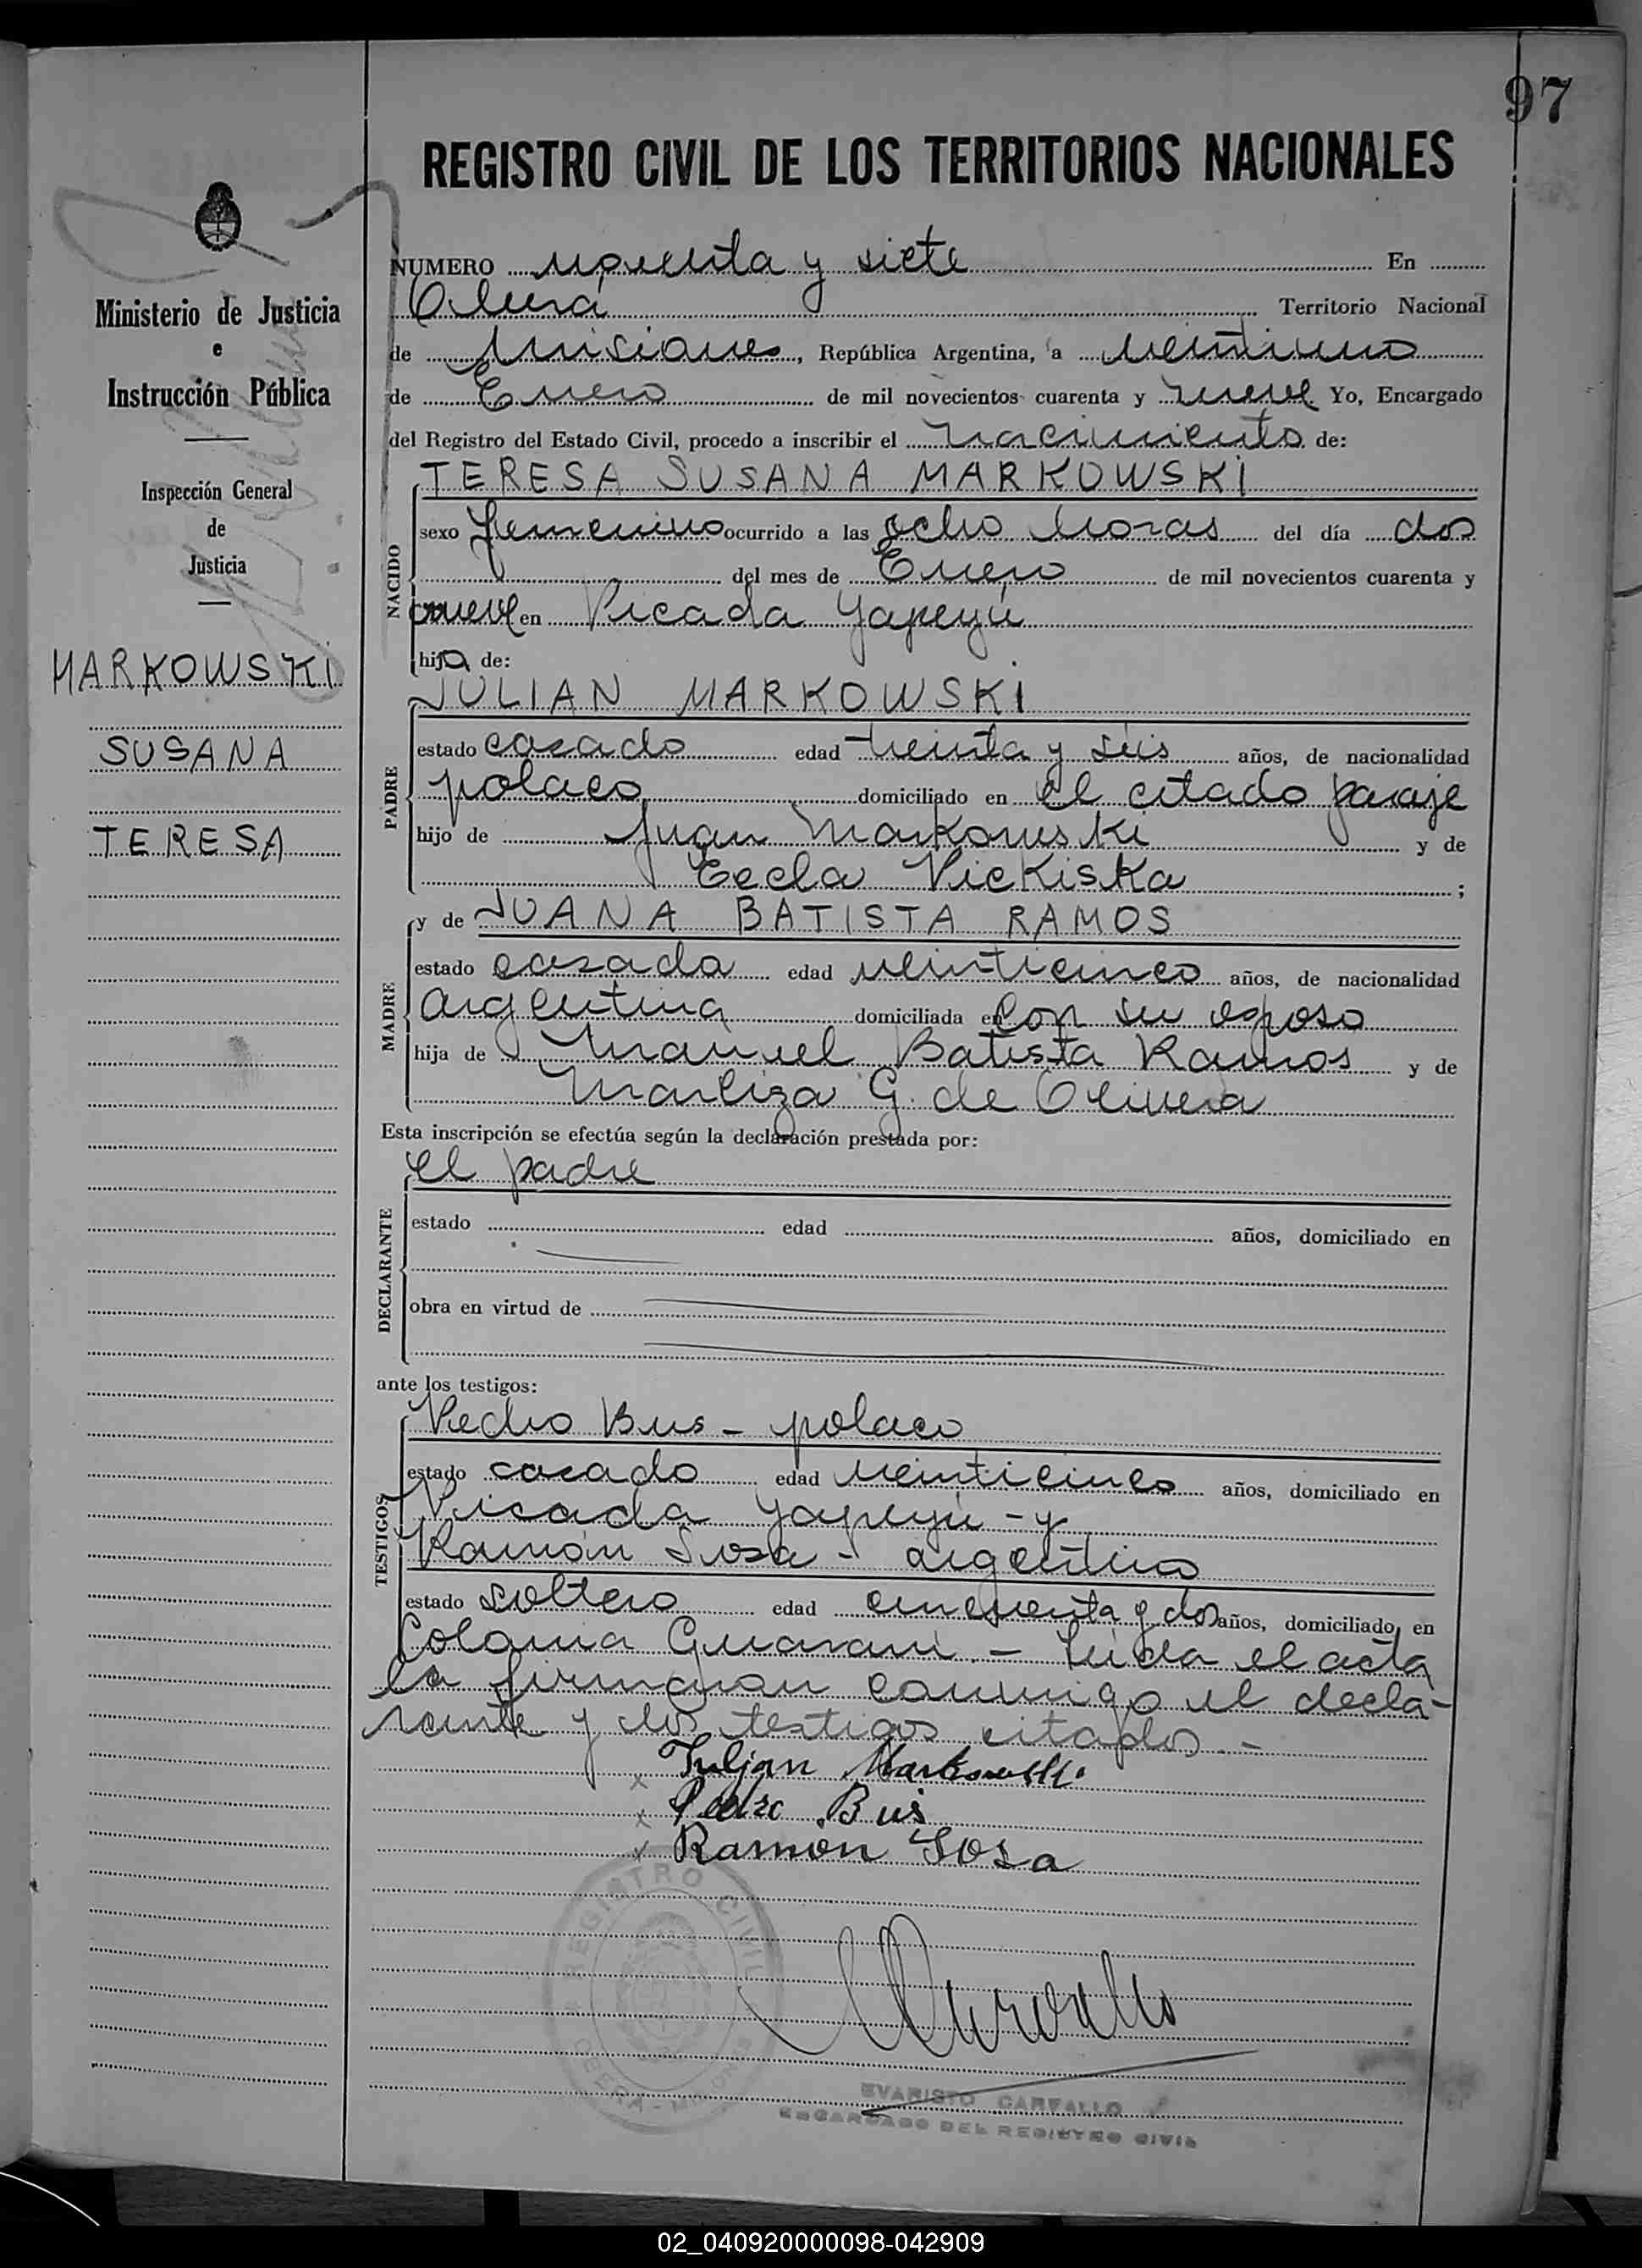 97
REGISTRO CIVIL DE LOS TERRITORIOS NACIONALES
Ministerio de Justicia
e
Instrucción Pública
Inspección General
de
Justicia
MARKOWSKI
SUSANA
TERESA
NUMERO noventa y siete En
Oberá Territorio Nacional
de Misiones, República Argentina, a veintiuno
de Enero de mil novecientos cuarenta y nueve Yo, Encargado
del Registro del Estado Civil, procedo a inscribir el nacimiento de:
TERESA SUSANA MARKOWSKI
NACIDO
sexo femenino ocurrido a las ocho horas del día dos
del mes de Enero de mil novecientos cuarenta y
nueve en Picada Yapeyú
hija de:
JULIAN MARKOWSKI
PADRE
estado casado edad treinta y seis años, de nacionalidad
polaco domiciliado en el citado paraje
hijo de Juan Markowski y de
Tecla Vickiska ;
y de JUANA BATISTA RAMOS
MADRE
estado casada edad veinticinco años, de nacionalidad
argentina domiciliada en con su esposo
hija de Manuel Batista Ramos y de
Marliza G. de Olivera
Esta inscripción se efectúa según la declaración prestada por:
el padre
DECLARANTE
estado edad años, domiciliado en
obra en virtud de
ante los testigos:
Pedro Bus - polaco
TESTIGOS
estado casado edad veinticinco años, domiciliado en
Picada Yapeyú - y
Ramón Sosa - argentino
estado soltero edad cincuenta y dos años, domiciliado en
Colonia Guaraní. - Leida el acta
la firmaron conmigo el decla-
rante y los testigos citados. -
x Juljan Markowski
x Pedro Bus
x Ramón Sosa
REGISTRO CIVIL
OBERÁ - MISIONES
EVARISTO CARVALLO
ENCARGADO DEL REGISTRO CIVIL
02_040920000098-042909